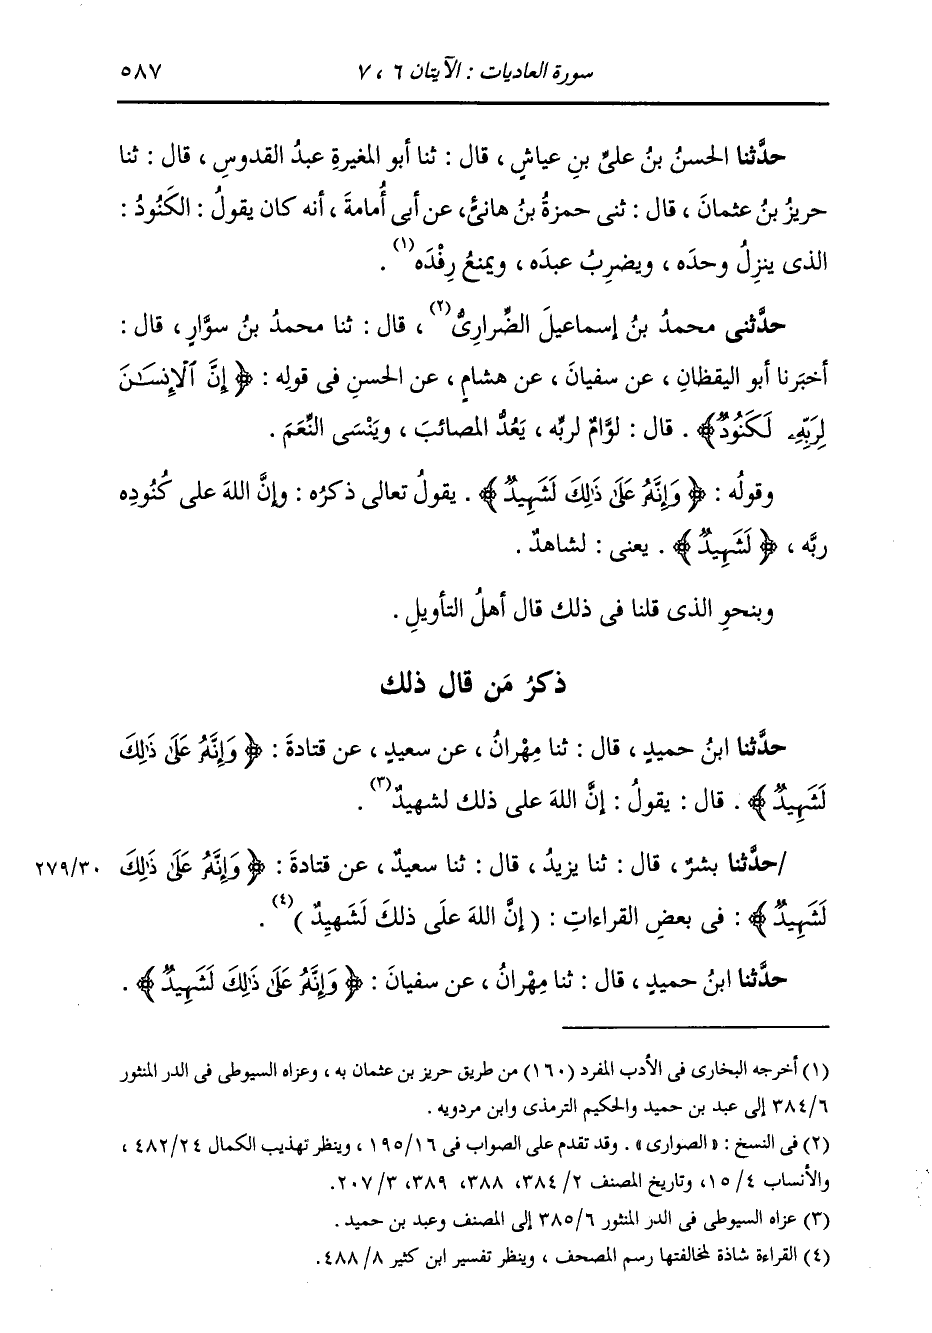 سورة العاديات : الآيتان ٦ ، ٧
٥٨٧
حدَّثنا الحسنُ بنُ علىِّ بنِ عياشٍ ، قال : ثنا أبو المغيرةِ عبدُ القدوسِ ، قال : ثنا
حريزُ بنُ عثمانَ ، قال : ثنى حمزةُ بنُ هانئٍ، عن أبى أُمامةَ ، أنه كان يقولُ : الكَنُودُ :
الذى ينزِلُ وحدَه ، ويضرِبُ عبدَه ، ويمنعُ رِفْدَه(١) .
حدَّثنى محمدُ بنُ إسماعيلَ الضِّرارىُّ(٢) ، قال : ثنا محمدُ بنُ سوَّارٍ ، قال :
أخبَرنا أبو اليقظانِ ، عن سفيانَ ، عن هشامٍ ، عن الحسنِ فى قولِه : ﴿ إِنَّ ٱلْإِنسَـٰنَ
لِرَبِّهِۦ لَكَنُودٌ﴾ . قال : لوَّامٌ لربِّه ، يَعُدُّ المصائبَ ، ويَنْسَى النِّعَمَ .
وقولُه : ﴿ وَإِنَّهُۥ عَلَىٰ ذَٰلِكَ لَشَهِيدٌ﴾ . يقولُ تعالى ذكرُه : وإنَّ اللهَ على كُنُودِه
ربَّه ، ﴿ لَشَهِيدٌ﴾ . يعنى : لشاهدٌ .
وبنحوِ الذى قلنا فى ذلك قال أهلُ التأويلِ .
ذكرُ مَن قال ذلك
حدَّثنا ابنُ حميدٍ ، قال : ثنا مِهْرانُ ، عن سعيدٍ ، عن قتادةَ : ﴿ وَإِنَّهُۥ عَلَىٰ ذَٰلِكَ
لَشَهِيدٌ﴾ . قال : يقولُ : إنَّ اللهَ على ذلك لشهيدٌ(٣) .
/حدَّثنا بشرٌ ، قال : ثنا يزيدُ ، قال : ثنا سعيدٌ ، عن قتادةَ : ﴿ وَإِنَّهُۥ عَلَىٰ ذَٰلِكَ ٢٧٩/٣٠
لَشَهِيدٌ﴾ : فى بعضِ القراءاتِ : ( إنَّ اللهَ علَى ذلكَ لَشَهِيدٌ )(٤) .
حدَّثنا ابنُ حميدٍ ، قال : ثنا مِهْرانُ ، عن سفيانَ : ﴿ وَإِنَّهُۥ عَلَىٰ ذَٰلِكَ لَشَهِيدٌ﴾ .
(١) أخرجه البخارى فى الأدب المفرد (١٦٠) من طريق حريز بن عثمان به ، وعزاه السيوطى فى الدر المنثور
٣٨٤/٦ إلى عبد بن حميد والحكيم الترمذى وابن مردويه .
(٢) فى النسخ : « الصوارى» . وقد تقدم على الصواب فى ١٩٥/١٦ ، وينظر تهذيب الكمال ٤٨٢/٢٤ ،
والأنساب ٤/ ١٥، وتاريخ المصنف ٢/ ٣٨٤، ٣٨٨، ٣٨٩، ٣/ ٢٠٧.
(٣) عزاه السيوطى فى الدر المنثور ٣٨٥/٦ إلى المصنف وعبد بن حميد .
(٤) القراءة شاذة لمخالفتها رسم المصحف ، وينظر تفسير ابن كثير ٨/ ٤٨٨.